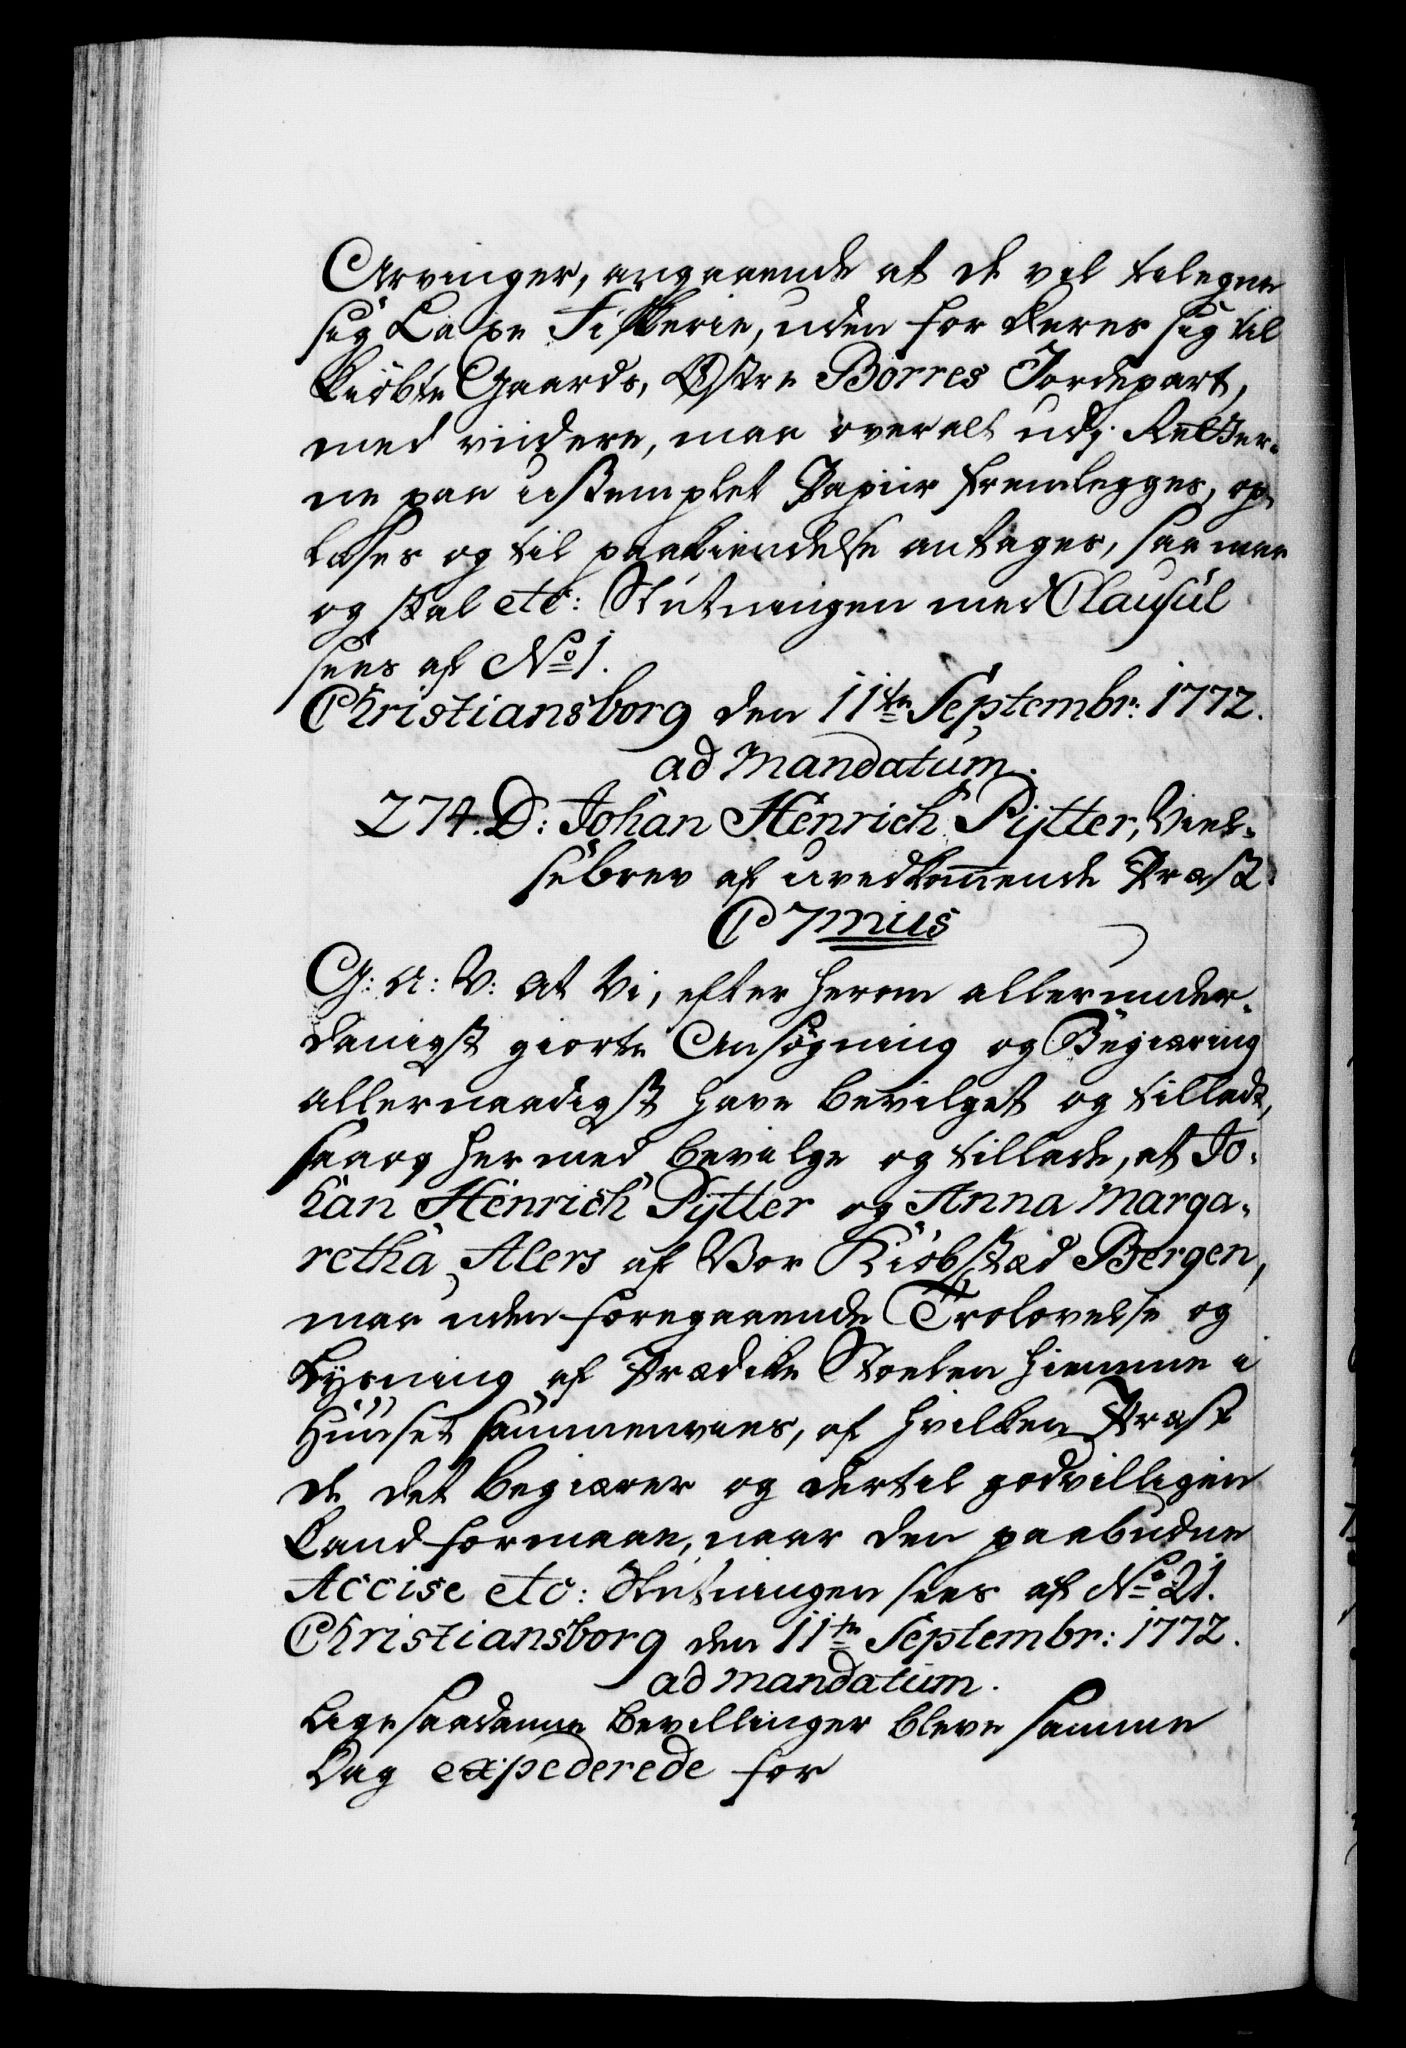 Arvinger, angaaende at de vil tilegne
sig Laxe Fiskerie, uden for deres sig til
kiöbte Gaards, Østre Börres Jordepart,
med viidere, maa overalt udj Retter-
ne paa ustemplet Papiir fremlegges, op-
læses og til paakiendelse antages, saa maa
og skal etc: Slutningen med Clausül
sees af No 1.
Christiansborg den 11te Septembr: 1772.
ad Mandatum.
274. D: Johan Henrich Pÿtter, Viel-
sebrev af uvedkommende Præst.
C 7mus
G: A: V: at Vi, efter herom allerunder-
danigst giorte Ansøgning og Begiæring
allernaadigst have bevilget og tilladt,
saa og hermed bevilge og tillade, at Jo-
han Henrich Pÿtter og Anna Marga-
retha Alers af Vor Kiöbstæd Bergen,
maa uden foregaaende Trolovelse og
Lysning af Prædike Stoelen hiemme i
Huuset sammenvies, af hvilken Præst
de det begiærer og dertil godvilligen
kand formaae, naar den paabudne
Accise etc: Slutningen sees af No 21.
Christiansborg den 11te Septembr: 1772.
ad mandatum.
Lige saadanne Bevillinger bleve samme
Dag expederede for